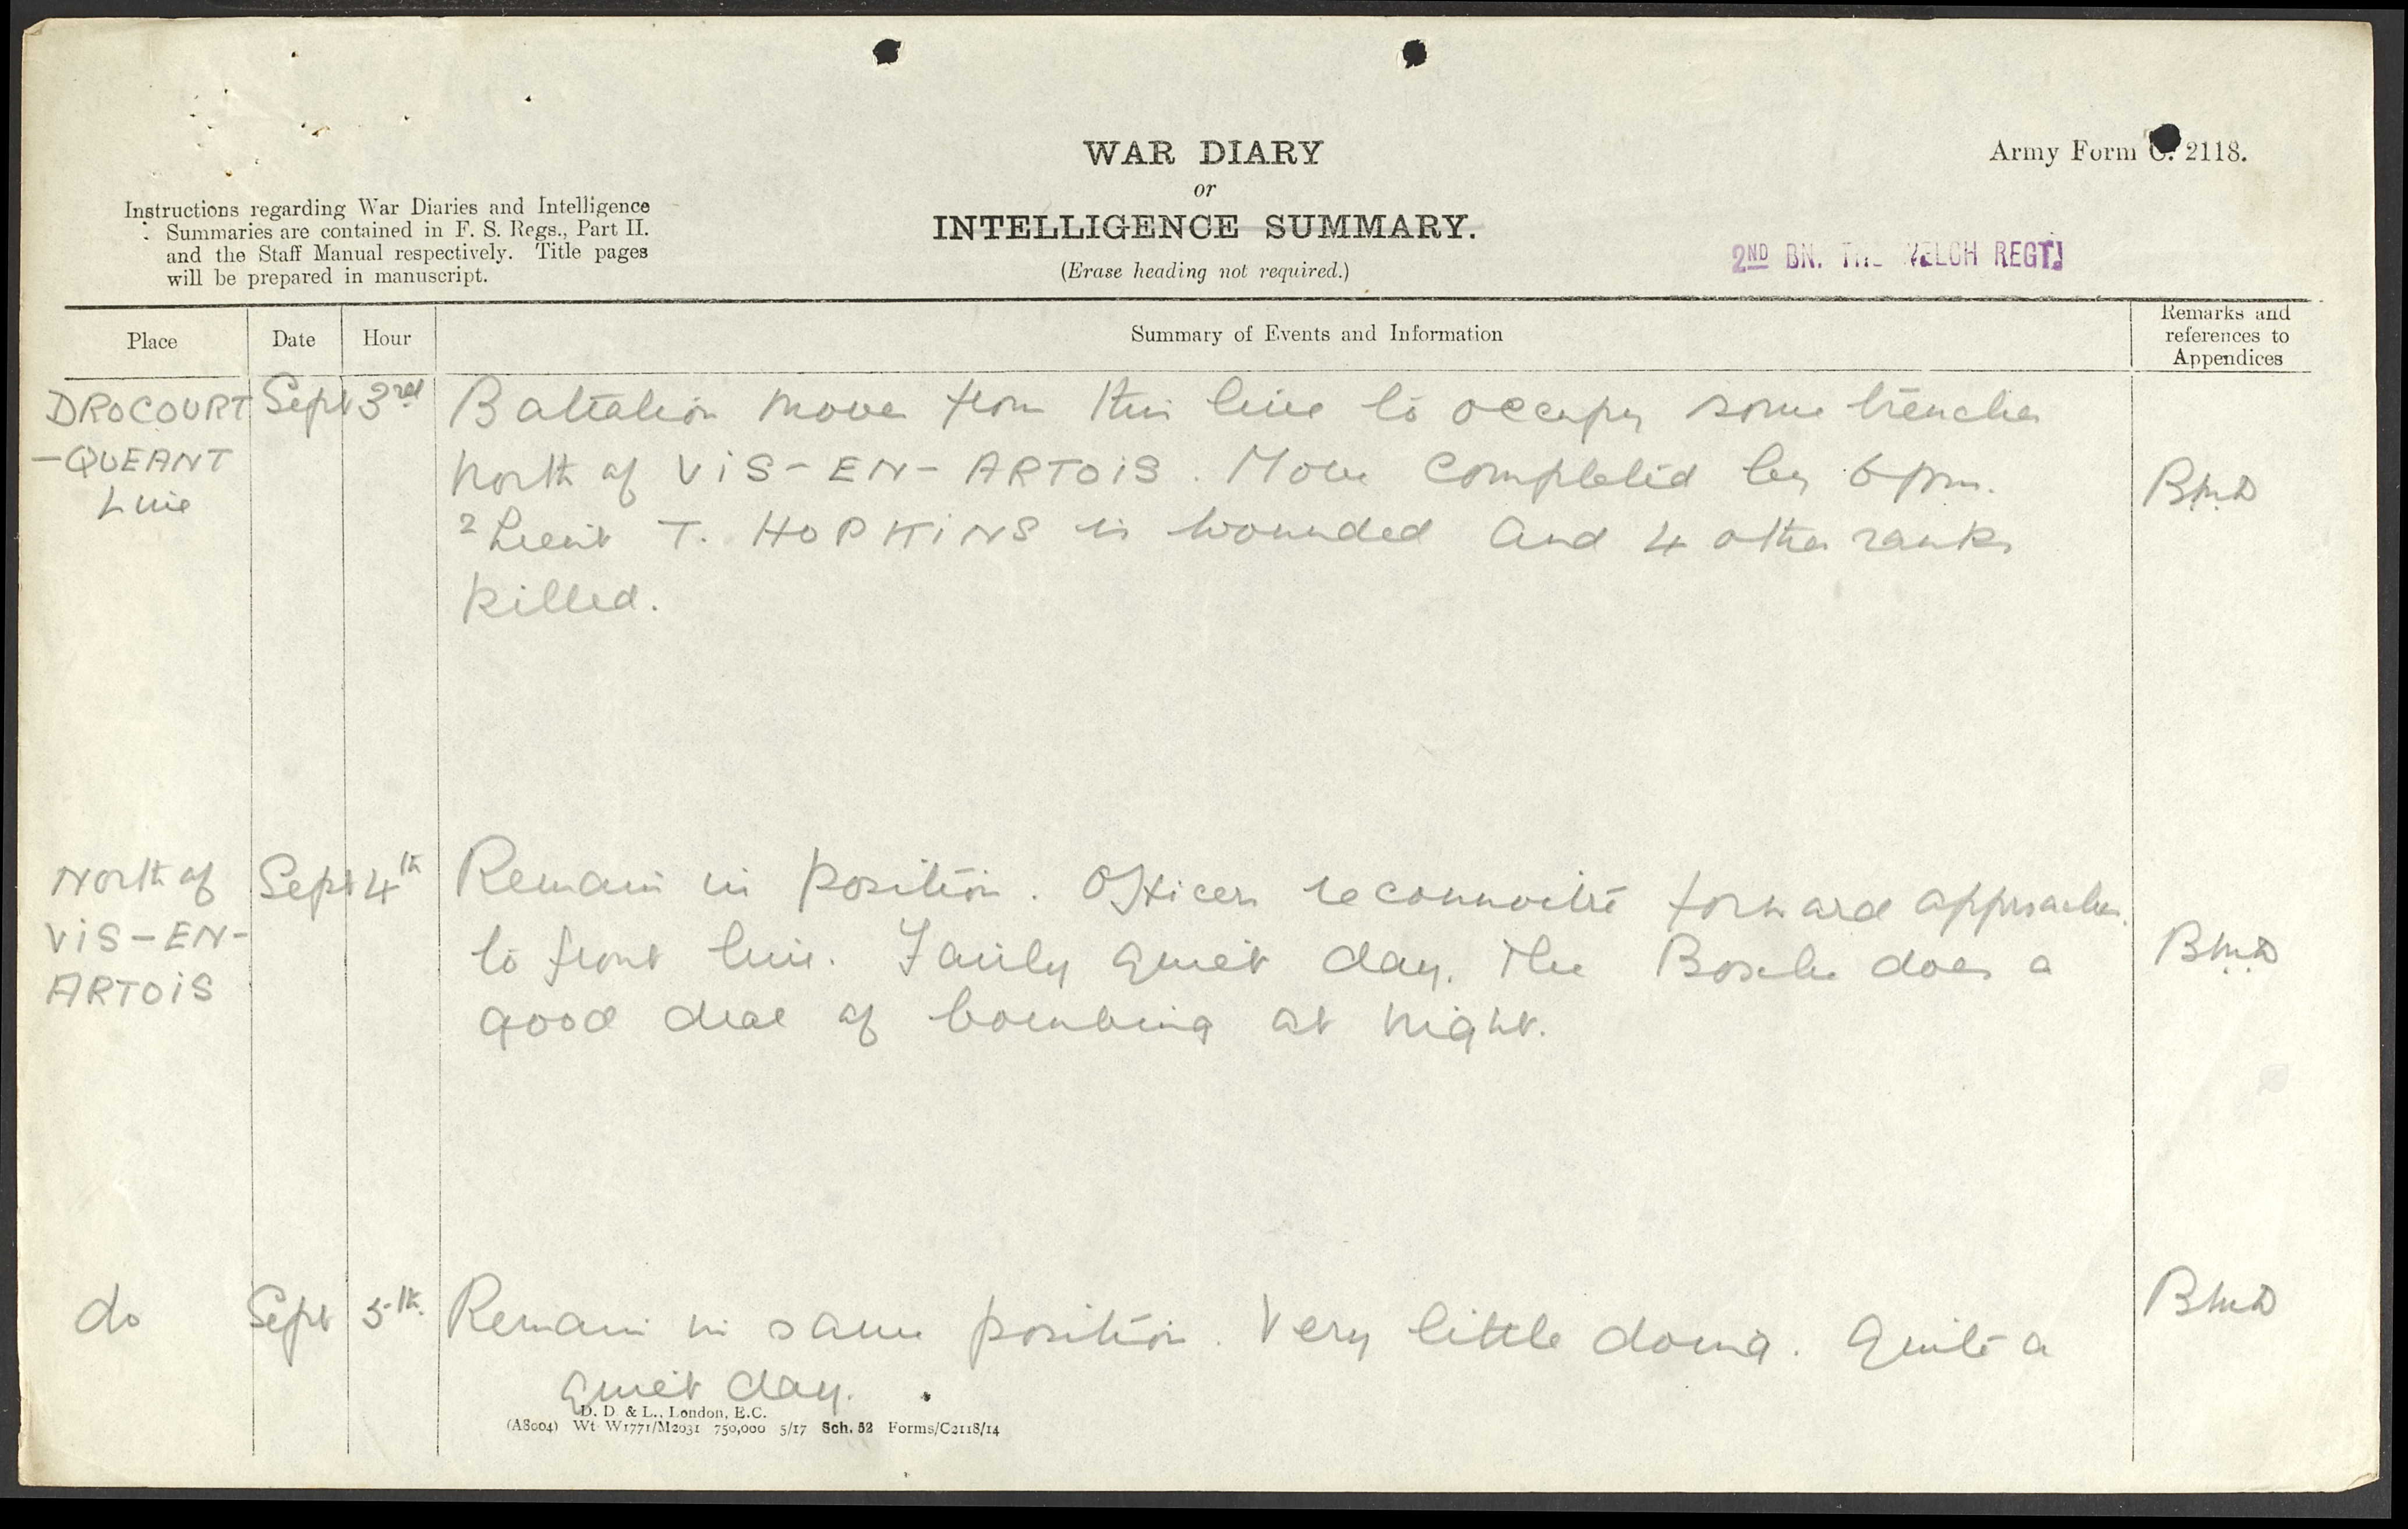 WAR DIARY
or
INTELLIGENCE SUMMARY.
(Erase heading not required.)
Army Form C. 2118.
Instructions regarding War Diaries and Intelligence
Summaries are contained in F. S. Regs., Part II.
and the Staff Manual respectively. Title pages
will be prepared in manuscript.
2ND BN. THE WELCH REGT.
Place Date Hour Summary of Events and Information Remarks and references to Appendices
DROCOURT Sept 3rd Battalion move from this line to occupy some trenches
-QUEANT north of ViS-EN-ARTOiS. Move completed by 6pm. BMD
Line 2Lieut T. HOPKiNS is wounded and 4 other ranks
killed.
North of Sept 4th Remain in position. Officers reconnoitre forward approaches
ViS-EN- to front line. Fairly quiet day. The Bosche does a BMD
ARTOiS good deal of bombing at night.
do Sept 5th. Remain in same position. Very little doing. Quite a BMD
quiet day.
D. D. & L., London, E.C.
(A8004) Wt. W1771/M2031 750,000 5/17 Sch. 52 Forms/C2118/14